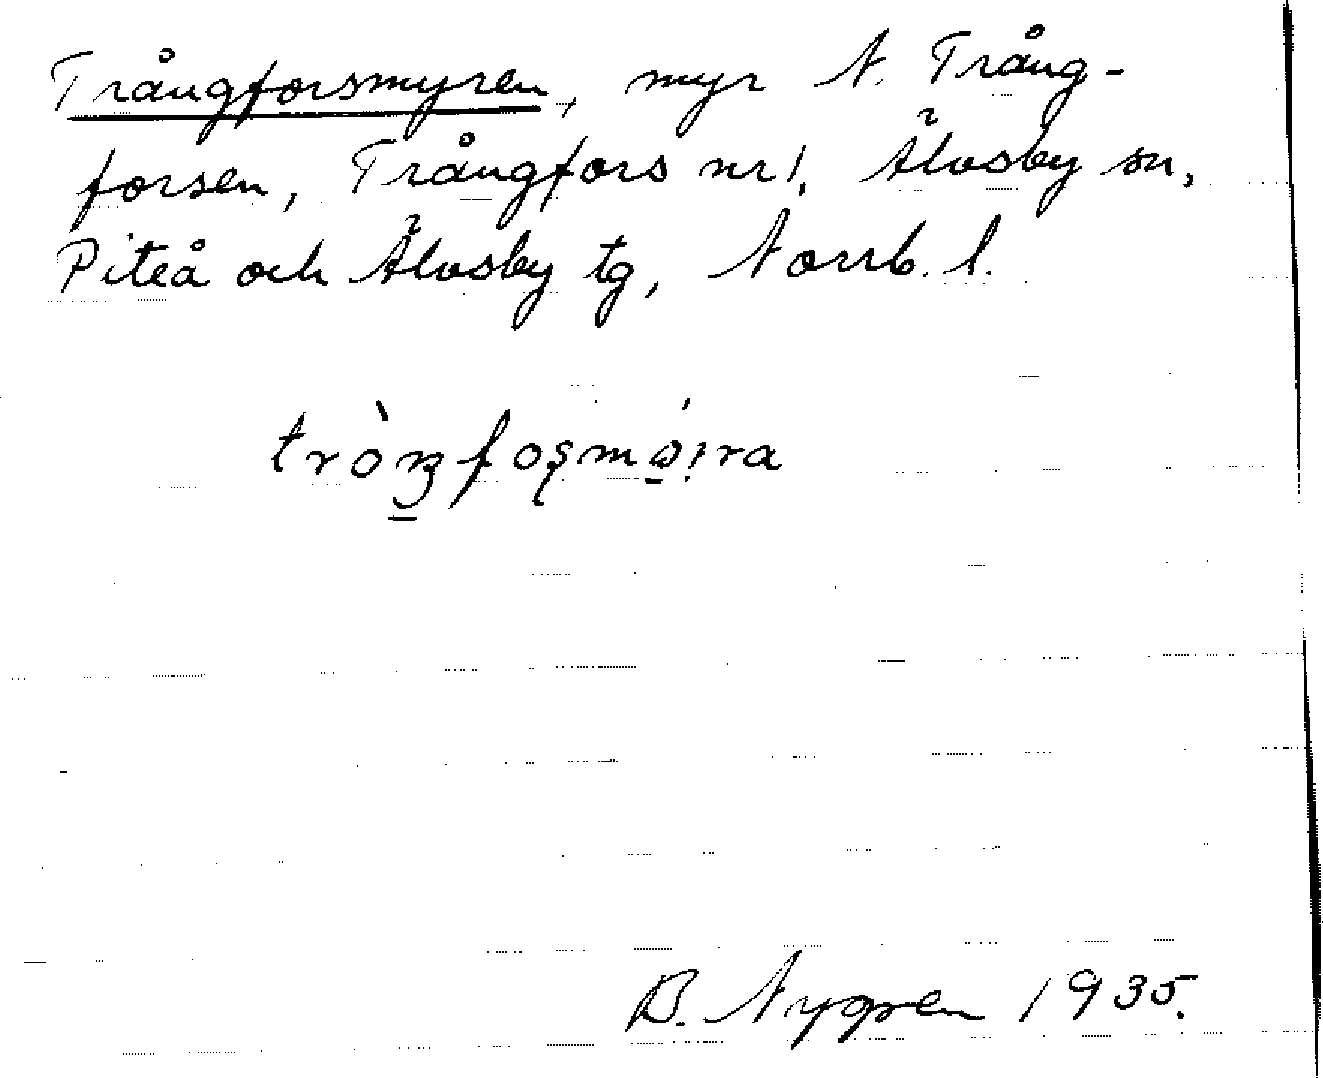 Trångforsmyren, myr N. Trång-
forsen, Trångfors nr 1, Älvsby sn,
Piteå och Älvsby tg, Norrb. l.
B. Nygren 1935.